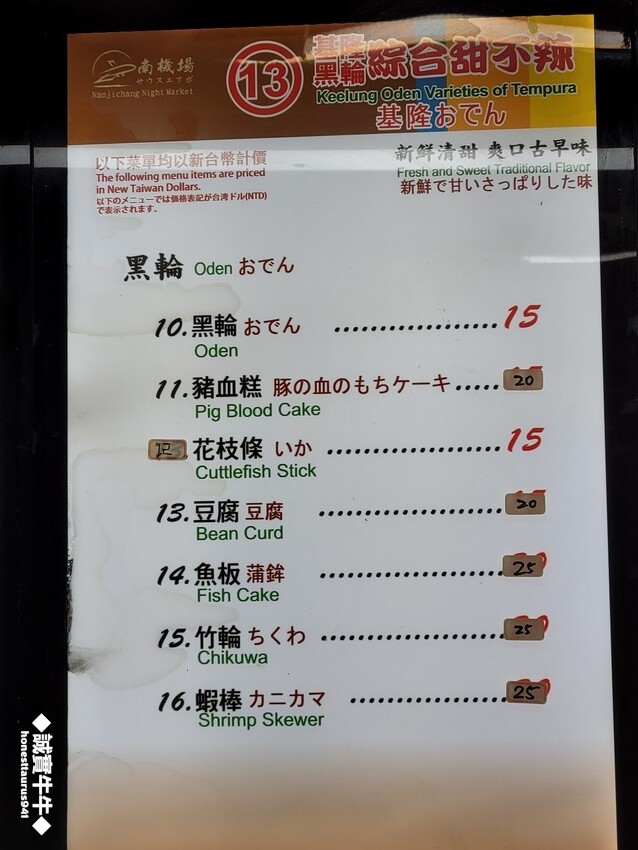 南機場
サウスエアポ
Nanjichang Night Market
13
基隆
黑輪
綜合甜不辣
Keelung Oden Varieties of Tempura
基隆おでん
以下菜單均以新台幣計價
The following menu items are priced
in New Taiwan Dollars.
以下のメニューでは価格表記が台湾ドル(NTD)
で表示されます。
新鮮清甜 爽口古早味
Fresh and Sweet Traditional Flavor
新鮮で甘いさっぱりした味
黑輪 Oden おでん
10.黑輪 おでん ................. 15
Oden
11.豬血糕 豚の血のもちケーキ..... 20
Pig Blood Cake
花枝條 いか ................. 15
Cuttlefish Stick
13.豆腐 豆腐 .................. 20
Bean Curd
14.魚板 蒲鉾 .................. 25
Fish Cake
15.竹輪 ちくわ .................. 25
Chikuwa
16.蝦棒 カニカマ ............... 25
Shrimp Skewer
◆誠實牛牛◆
honesttaurus941